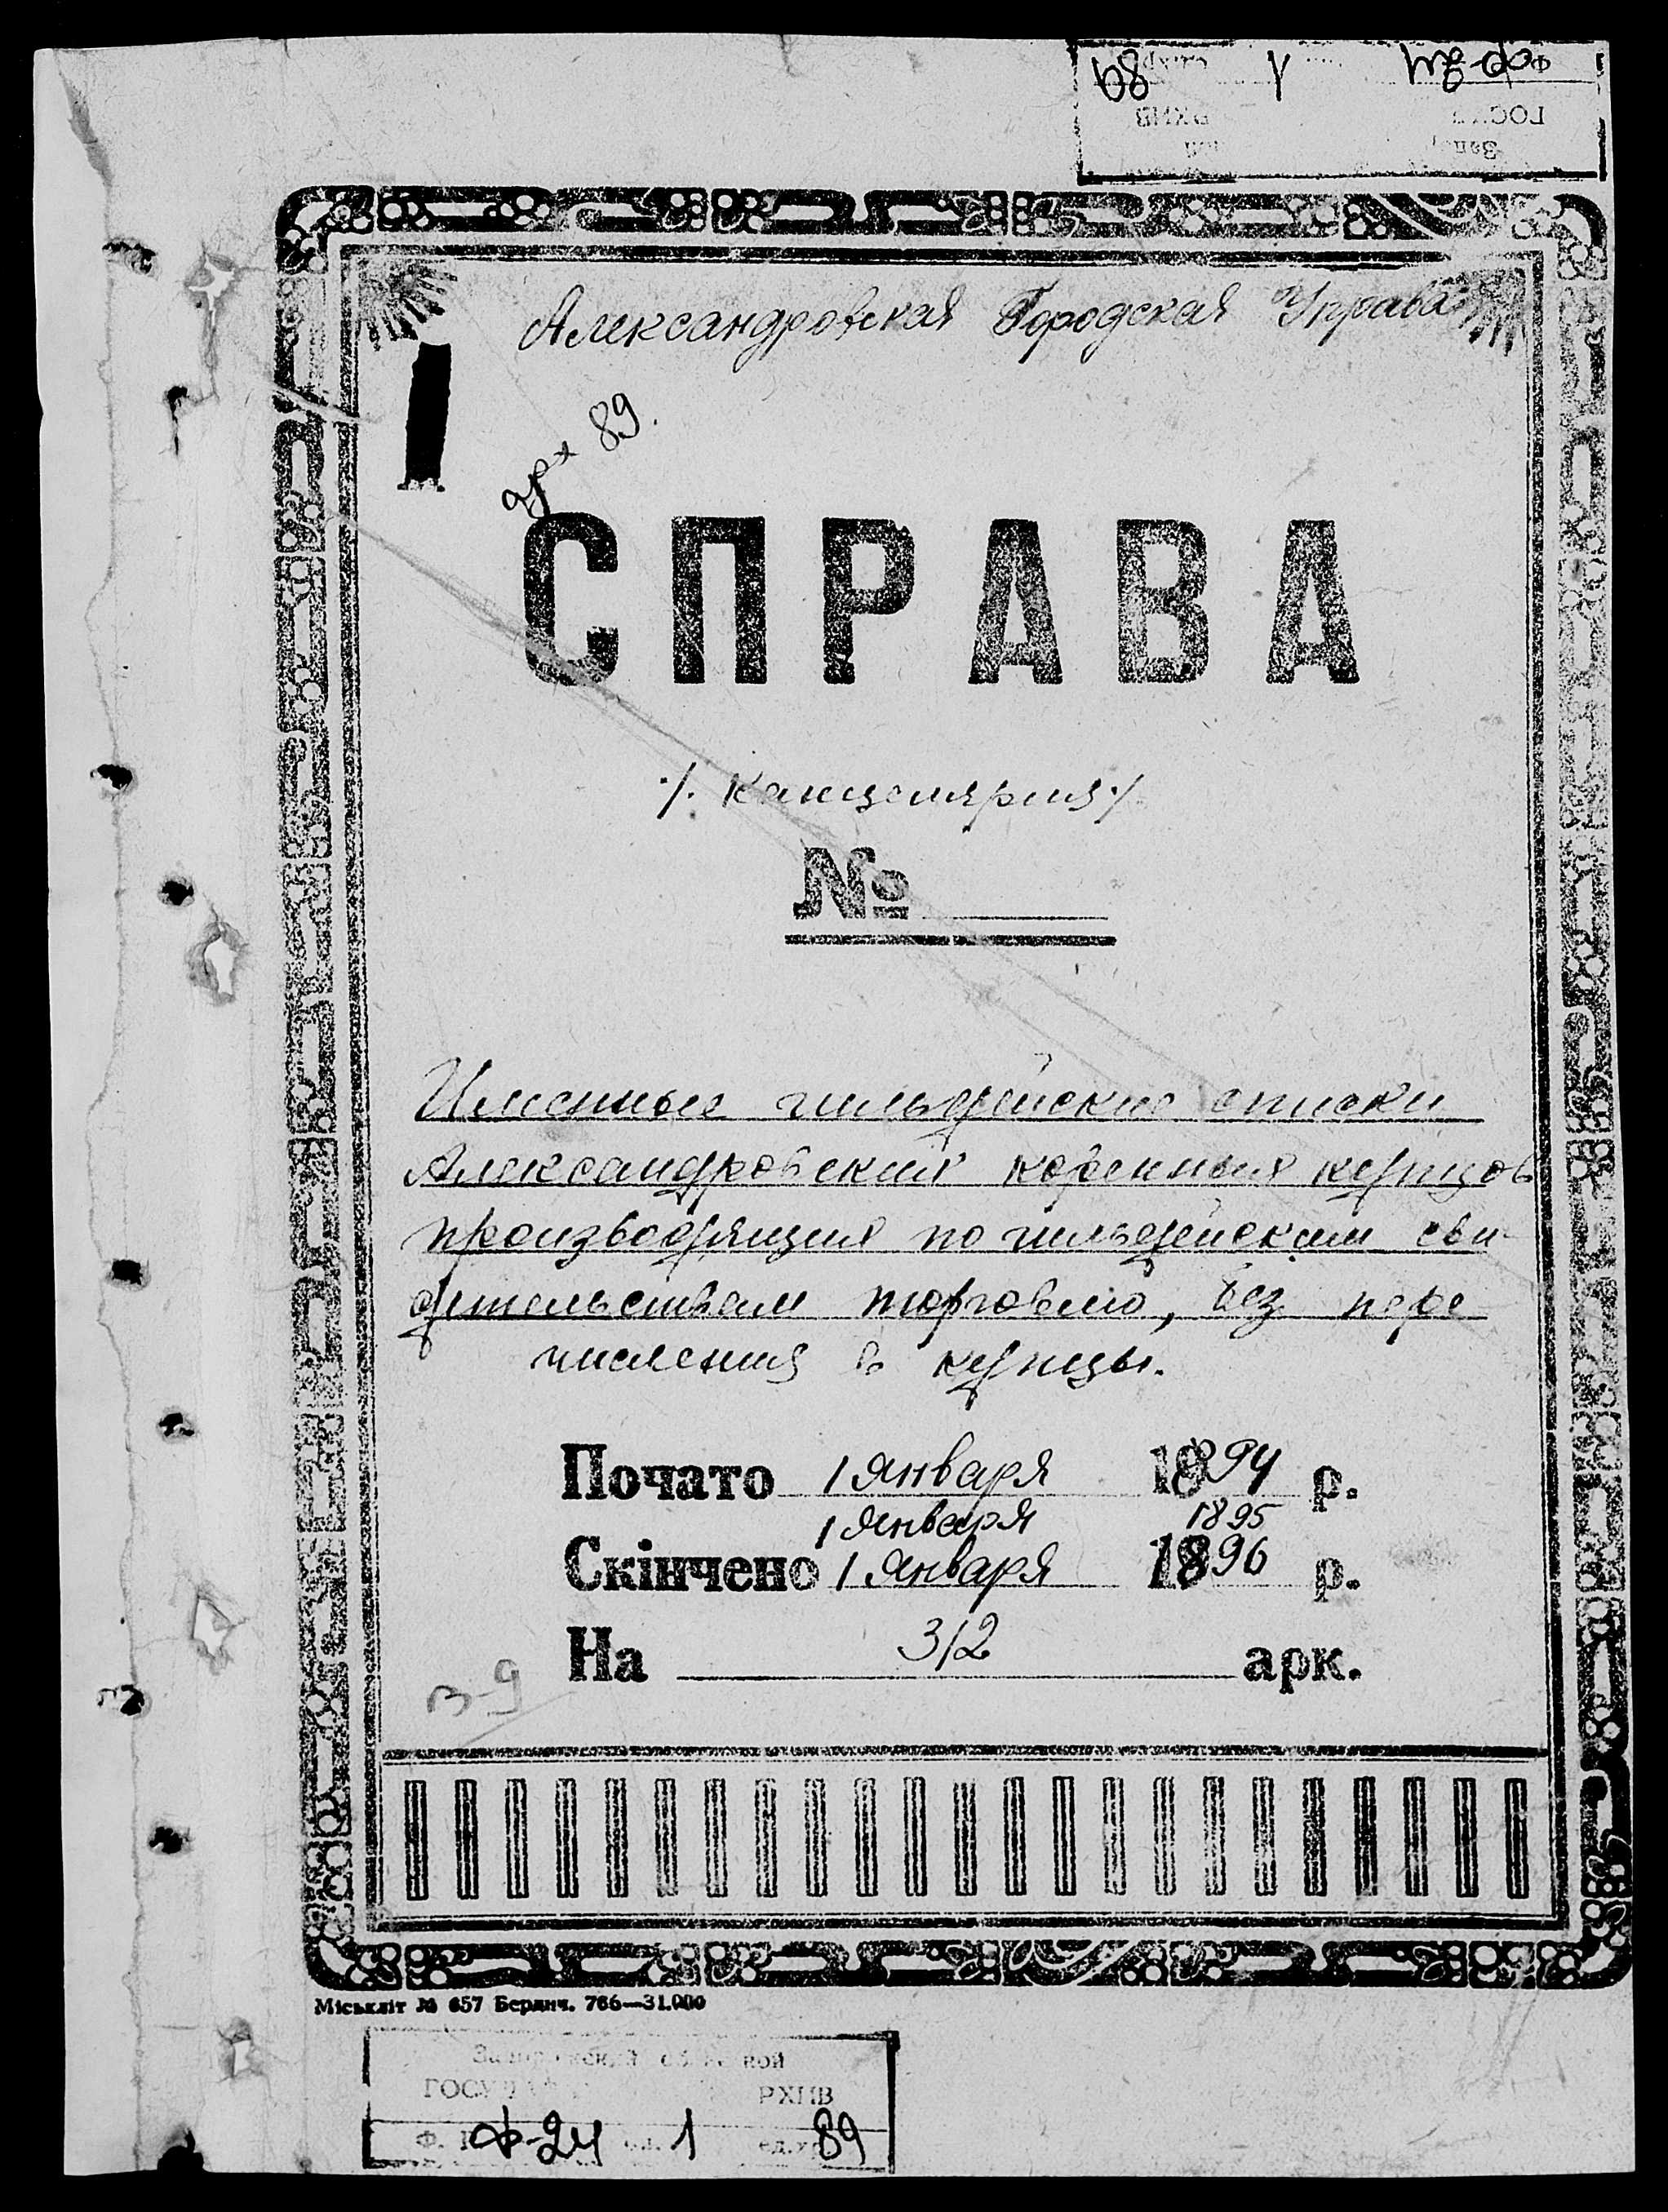 Ф-24 1 89
Александровская Городская Управа
арх 89.
СПРАВА
./. Канцелярия ./.
№
Именные гильдейские списки
Александровских коренных купцов
производящих по гильдейским сви-
детельствам торговлю, без пере
числения в купцы.
Почато 1 Января 1894 р.
1 Января 1895
Скінчено 1 Января 1896 р.
На 312 арк.
Міськліт № 657 Бердич. 766—31.000
ной
РХИВ
Ф-24 1 ед.хр. 89